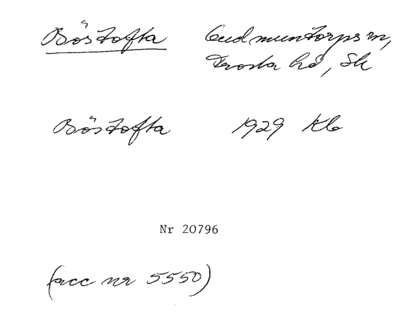 Böstofta Gudmuntorps sn,
Frosta hd, Sk
Böstofta 1929 Kb
Nr 20796
(acc nr 5550)